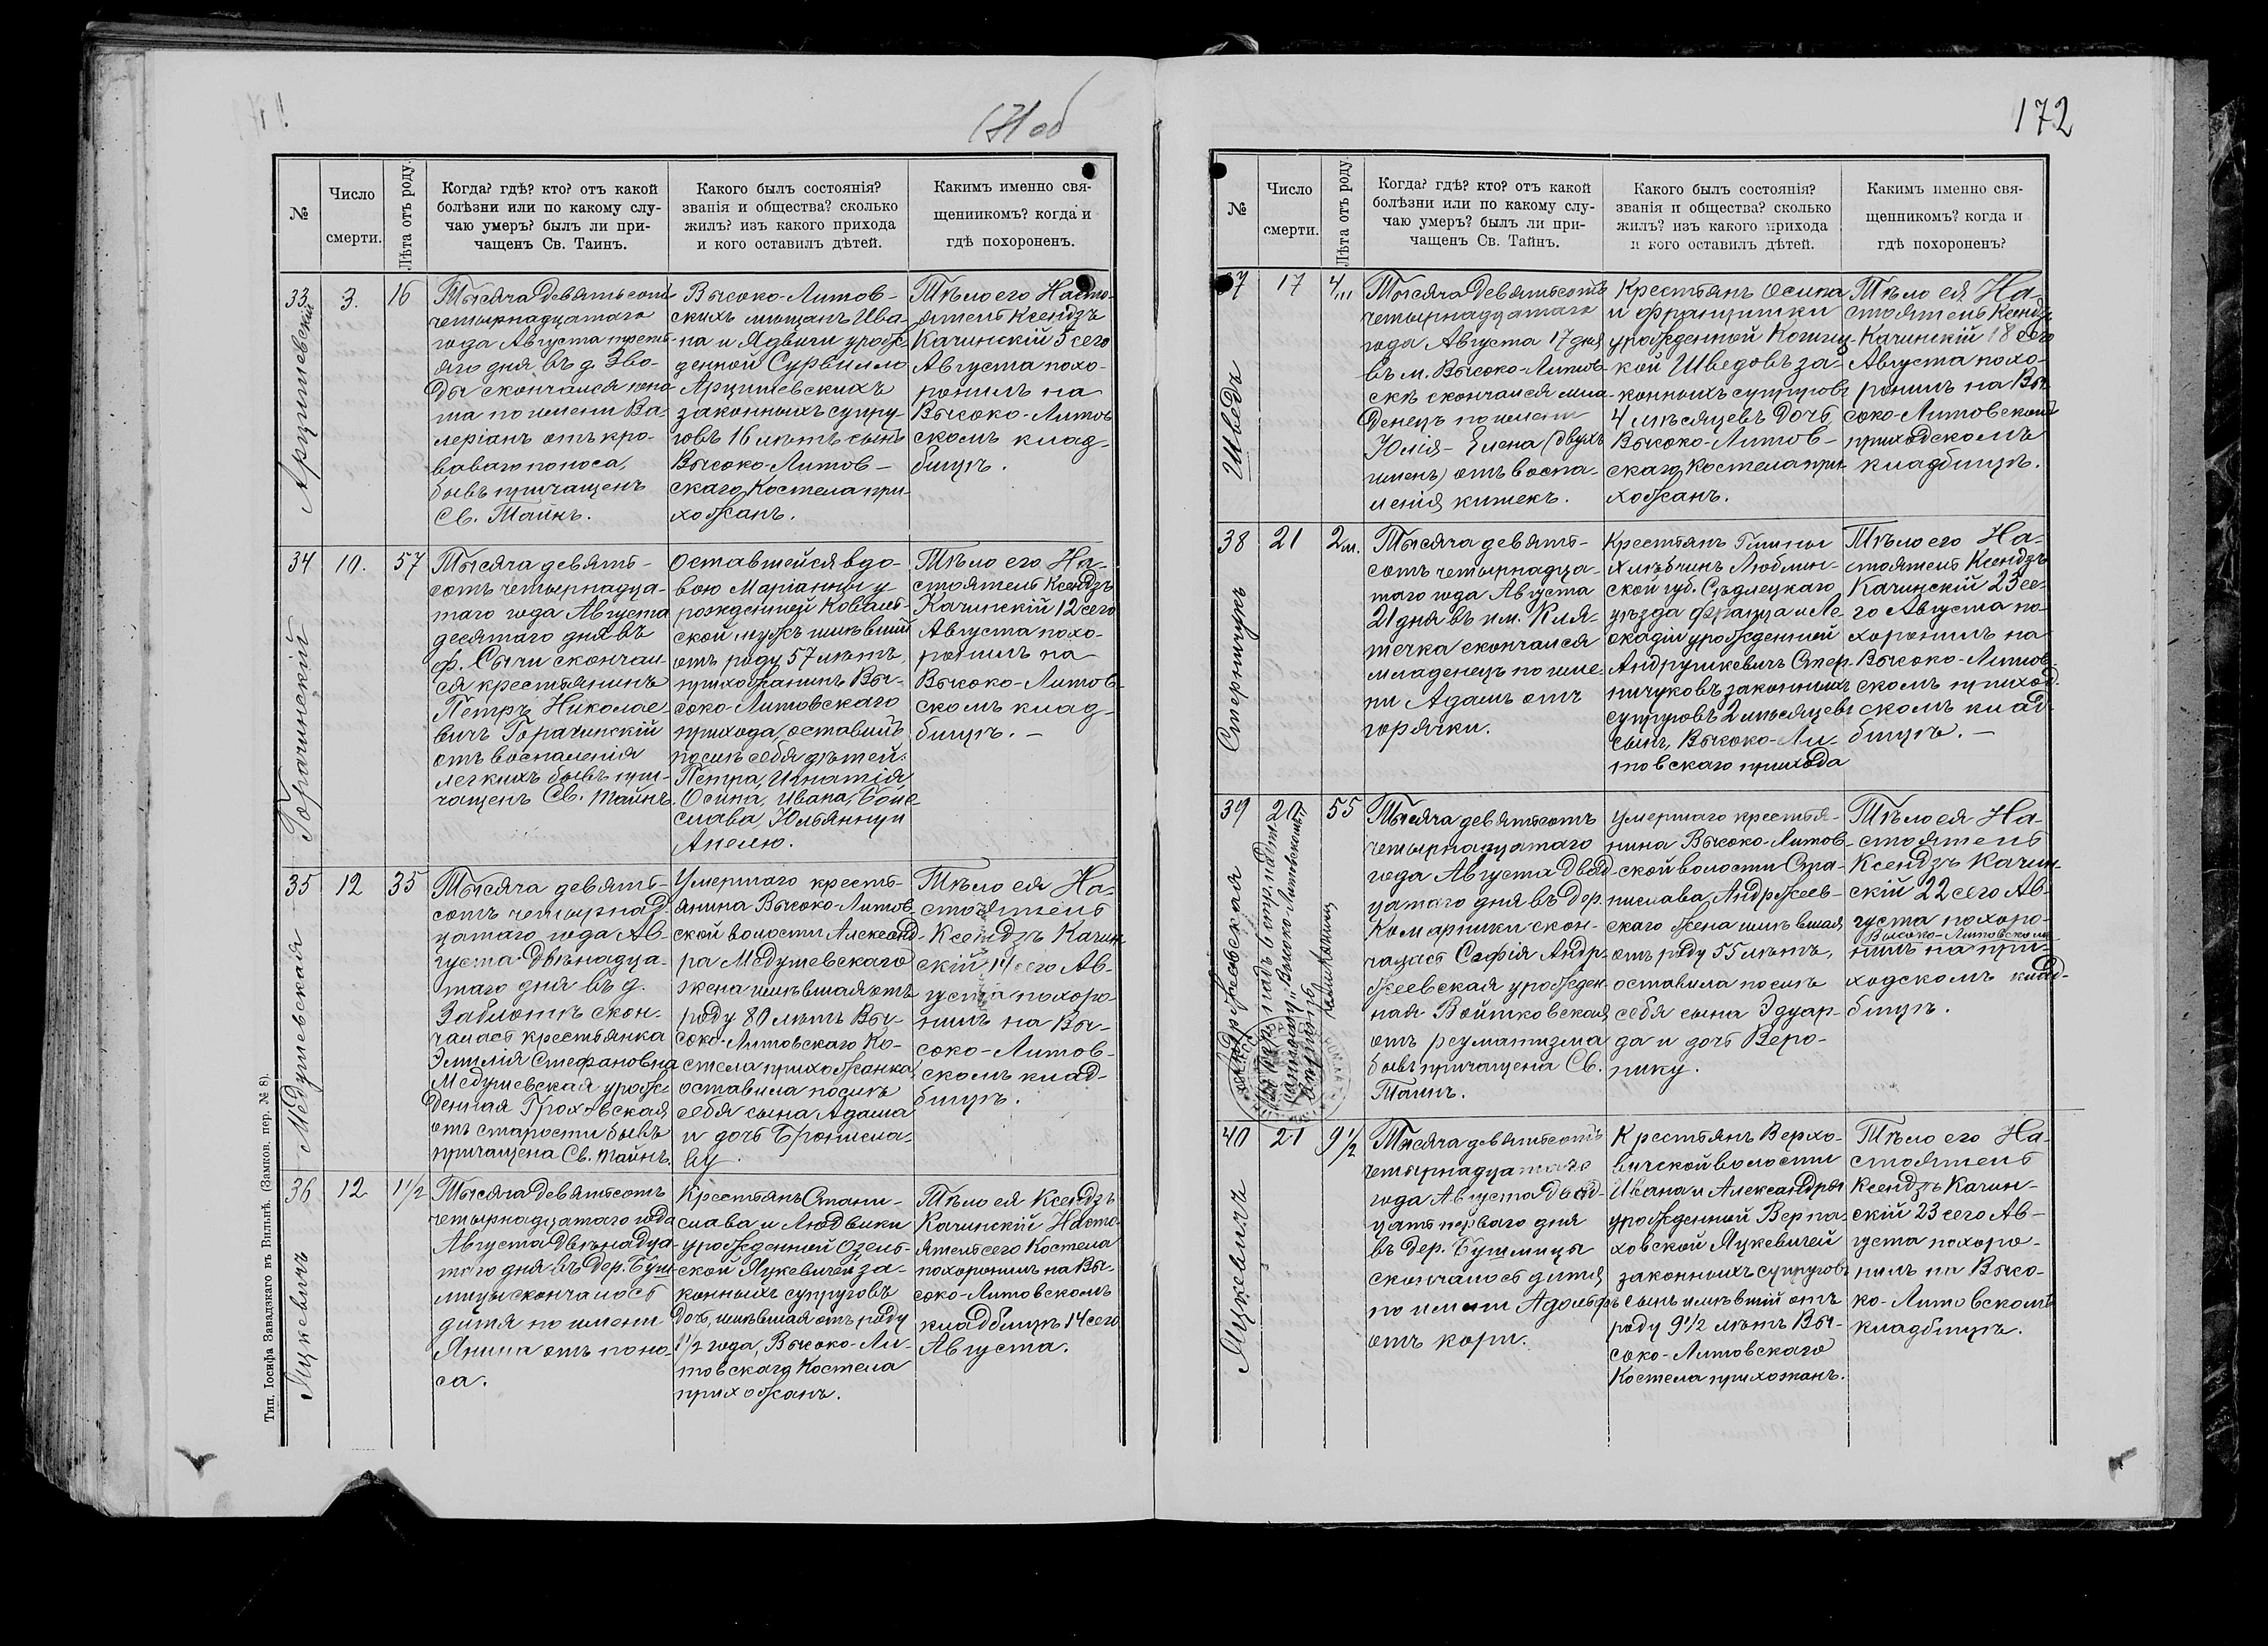 172
№
Число
смерти.
Лѣта отъ роду.
Когда? гдѣ? кто? отъ какой
болѣзни или по какому слу-
чаю умеръ? былъ ли при-
чащенъ Св. Таинъ.
Какого былъ состоянія?
званія и общества? сколько
жилъ? изъ какого прихода
и кого оставилъ дѣтей.
Какимъ именно свя-
щенникомъ? когда и
гдѣ похороненъ.
33.
Арцишевскій
3.
16
Тысяча девятьсотъ
четырнадцатаго
года Августа треть-
яго дня въ д. Зво-
ды скончался юно-
ша по имени Ва-
леріанъ отъ кро-
ваваго поноса,
бывъ причащенъ
Св. Тайнъ.
Высоко-Литов-
скихъ мѣщанъ Ива-
на и Ядвиги урож-
денной Сурвилло
Арцишевскихъ
законныхъ супру-
говъ 16 лѣтъ сынъ
Высоко-Литов-
скаго Костела при-
хожанъ.
Тѣло его Насто-
ятель Ксендзъ
Качинскій 5 сего
Августа похо-
ронилъ на
Высоко-Литов
скомъ клад-
бищѣ.
34
Горачинскій
10.
57
Тысяча девять-
сотъ четырнадца-
таго года Августа
десятаго дня въ
ф. Сычи скончал-
ся крестьянинъ
Петръ Николае
вичъ Горачинскій
отъ воспаленія
легкихъ бывъ при-
чащенъ Св. Тайнъ.
Оставшейся вдо-
вою Маріанны у
рожденной Коваль-
ской мужъ имѣвшій
отъ роду 57 лѣтъ,
прихожанинъ Вы-
соко-Литовскаго
прихода, оставивъ
послѣ себя дѣтей:
Петра, Игнатія
Осипа, Ивана, Боле
слава, Юльянну и
Анелю.
Тѣло его На-
стоятель Ксендзъ
Качинскій 12 сего
Августа похо-
ронилъ на
Высоко-Литов-
скомъ клад-
бищѣ. —
35
Медушевская
12
35
Тысяча девять-
сотъ четырнад-
цатаго года Ав-
густа двѣнадца-
таго дня въ д.
Заблотѣ скон-
чалась крестьянка
Эмилія Стефановна
Медушевская урож-
денная Гроховская
отъ старости бывъ
причащена Св. Тайнъ.
Умершаго кресть-
янина Высоко-Литов-
ской волости Александ-
ра Медушевскаго
жена имѣвшая отъ
роду 80 лѣтъ Вы-
соко-Литовскаго Ко-
стела прихожанка
оставила послѣ
себя сына Адама
и дочь Брониcла-
ву.
Тѣло ея На-
стоятель
Ксендзъ Качин
скій 14 сего Ав-
густа похоро-
нилъ на Вы-
соко-Литов-
скомъ клад-
бищѣ.
36
Яцкевичъ
12
1½
Тысяча девятьсотъ
четырнадцатаго года
Августа двѣнадца-
таго дня въ дер. Буш-
мицы скончалось
дитя по имени
Янина отъ поно-
са.
Крестьянъ Стани-
слава и Людвики
урожденной Озель-
ской Яцкевичей за-
конныхъ супруговъ
дочь, имѣвшая отъ роду
1½ года, Высоко-Ли-
товскаго Костела
прихожанъ.
Тѣло ея Ксендзъ
Качинскій Насто-
ятель сего Костела
похоронилъ на Вы-
соко-Литовскомъ
кладбищѣ 14 сего
Августа.
Тип. Іосифа Завадзкаго въ Вильнѣ. (Замков. пер. № 8).
№
Число
смерти.
Лѣта отъ роду
Когда? гдѣ? кто? отъ какой
болѣзни или по какому слу-
чаю умеръ? былъ ли при-
чащенъ Св. Тайнъ.
Какого былъ состоянія?
званія и общества? сколько
жилъ? изъ какого прихода
и кого оставилъ дѣтей.
Какимъ именно свя-
щенникомъ? когда и
гдѣ похороненъ?
37
Шведъ
17
4 м
Тысяча девятьсотъ
четырнадцатаго
года Августа 17 дня
въ м. Высоко-Литов-
скѣ скончался мла-
денецъ по имени
Юлія-Елена (двухъ
именъ) отъ воспа-
ленія кишекъ.
Крестьянъ Осипа
и Францишки
урожденной
кой Шведовъ за-
конныхъ супруговъ
4 мѣсяцевъ дочь,
Высоко-Литов-
скаго Костела при-
хожанъ.
Тѣло ея На-
стоятель Ксендзъ
Качинскій 18 сего
Августа похо-
ронилъ на Вы-
соко-Литовскомъ
приходскомъ
кладбищѣ.
38
Стерничукъ
21
2 м.
Тысяча девять-
сотъ четырнадца-
таго года Августа
21 дня въ им. Кля-
течка скончался
младенецъ по име-
ни Адамъ отъ
горячки.
Крестьянъ Гмины
Хлѣбчинъ Люблин-
ской губ. Сѣдлецкаго
уѣзда Франца и Ле-
окадіи урожденной
Андрушкевичъ Стер-
ничуковъ законныхъ
супруговъ 2 мѣсяцевъ
сынъ, Высоко-Ли-
товскаго прихода
Тѣло его На-
стоятель Ксендзъ
Качинскій 23 се-
го Августа по-
хоронилъ на
Высоко-Литов-
скомъ приход-
скомъ клад-
бищѣ. —
39
Андржеевская
20
55
Тысяча девятьсотъ
четырнадцатаго
года Августа двад-
цатаго дня въ дер.
Комарники скон-
чалась Софія Андр-
жеевская урожден-
ная Войтковская
отъ ревматизма
бывъ причащена Св.
Таинъ.
Умершаго крестья-
нина Высоко-Литов-
ской волости Ста-
нислава Андржеев-
скаго жена имѣвшая
отъ роду 55 лѣтъ,
оставила послѣ
себя сына Эдуар-
да и дочь Веро-
нику.
Тѣло ея На-
стоятель
Ксендзъ Качин-
скій 22 сего Ав-
густа похоро-
Высоко-Литовскомъ
нилъ на при-
ходскомъ клад-
бищѣ.
40
Яцкевичъ
21
9½
Тысяча девятьсотъ
четырнадцатаго
года Августа двад-
цать перваго дня
въ дер. Бушмицы
скончалось дитя
по имени Адольфъ
отъ кори.
Крестьянъ Верхо-
вичской волости
Ивана и Александры
урожденной Верпа-
ховской Яцкевичей
законныхъ супруговъ
сынъ имѣвшій отъ
роду 9½ лѣтъ Вы-
соко-Литовскаго
Костела прихожанъ.
Тѣло его На-
стоятель
Ксендзъ Качин-
скій 23 сего Ав-
густа похоро-
нилъ на Высо-
ко-Литовскомъ
кладбищѣ.